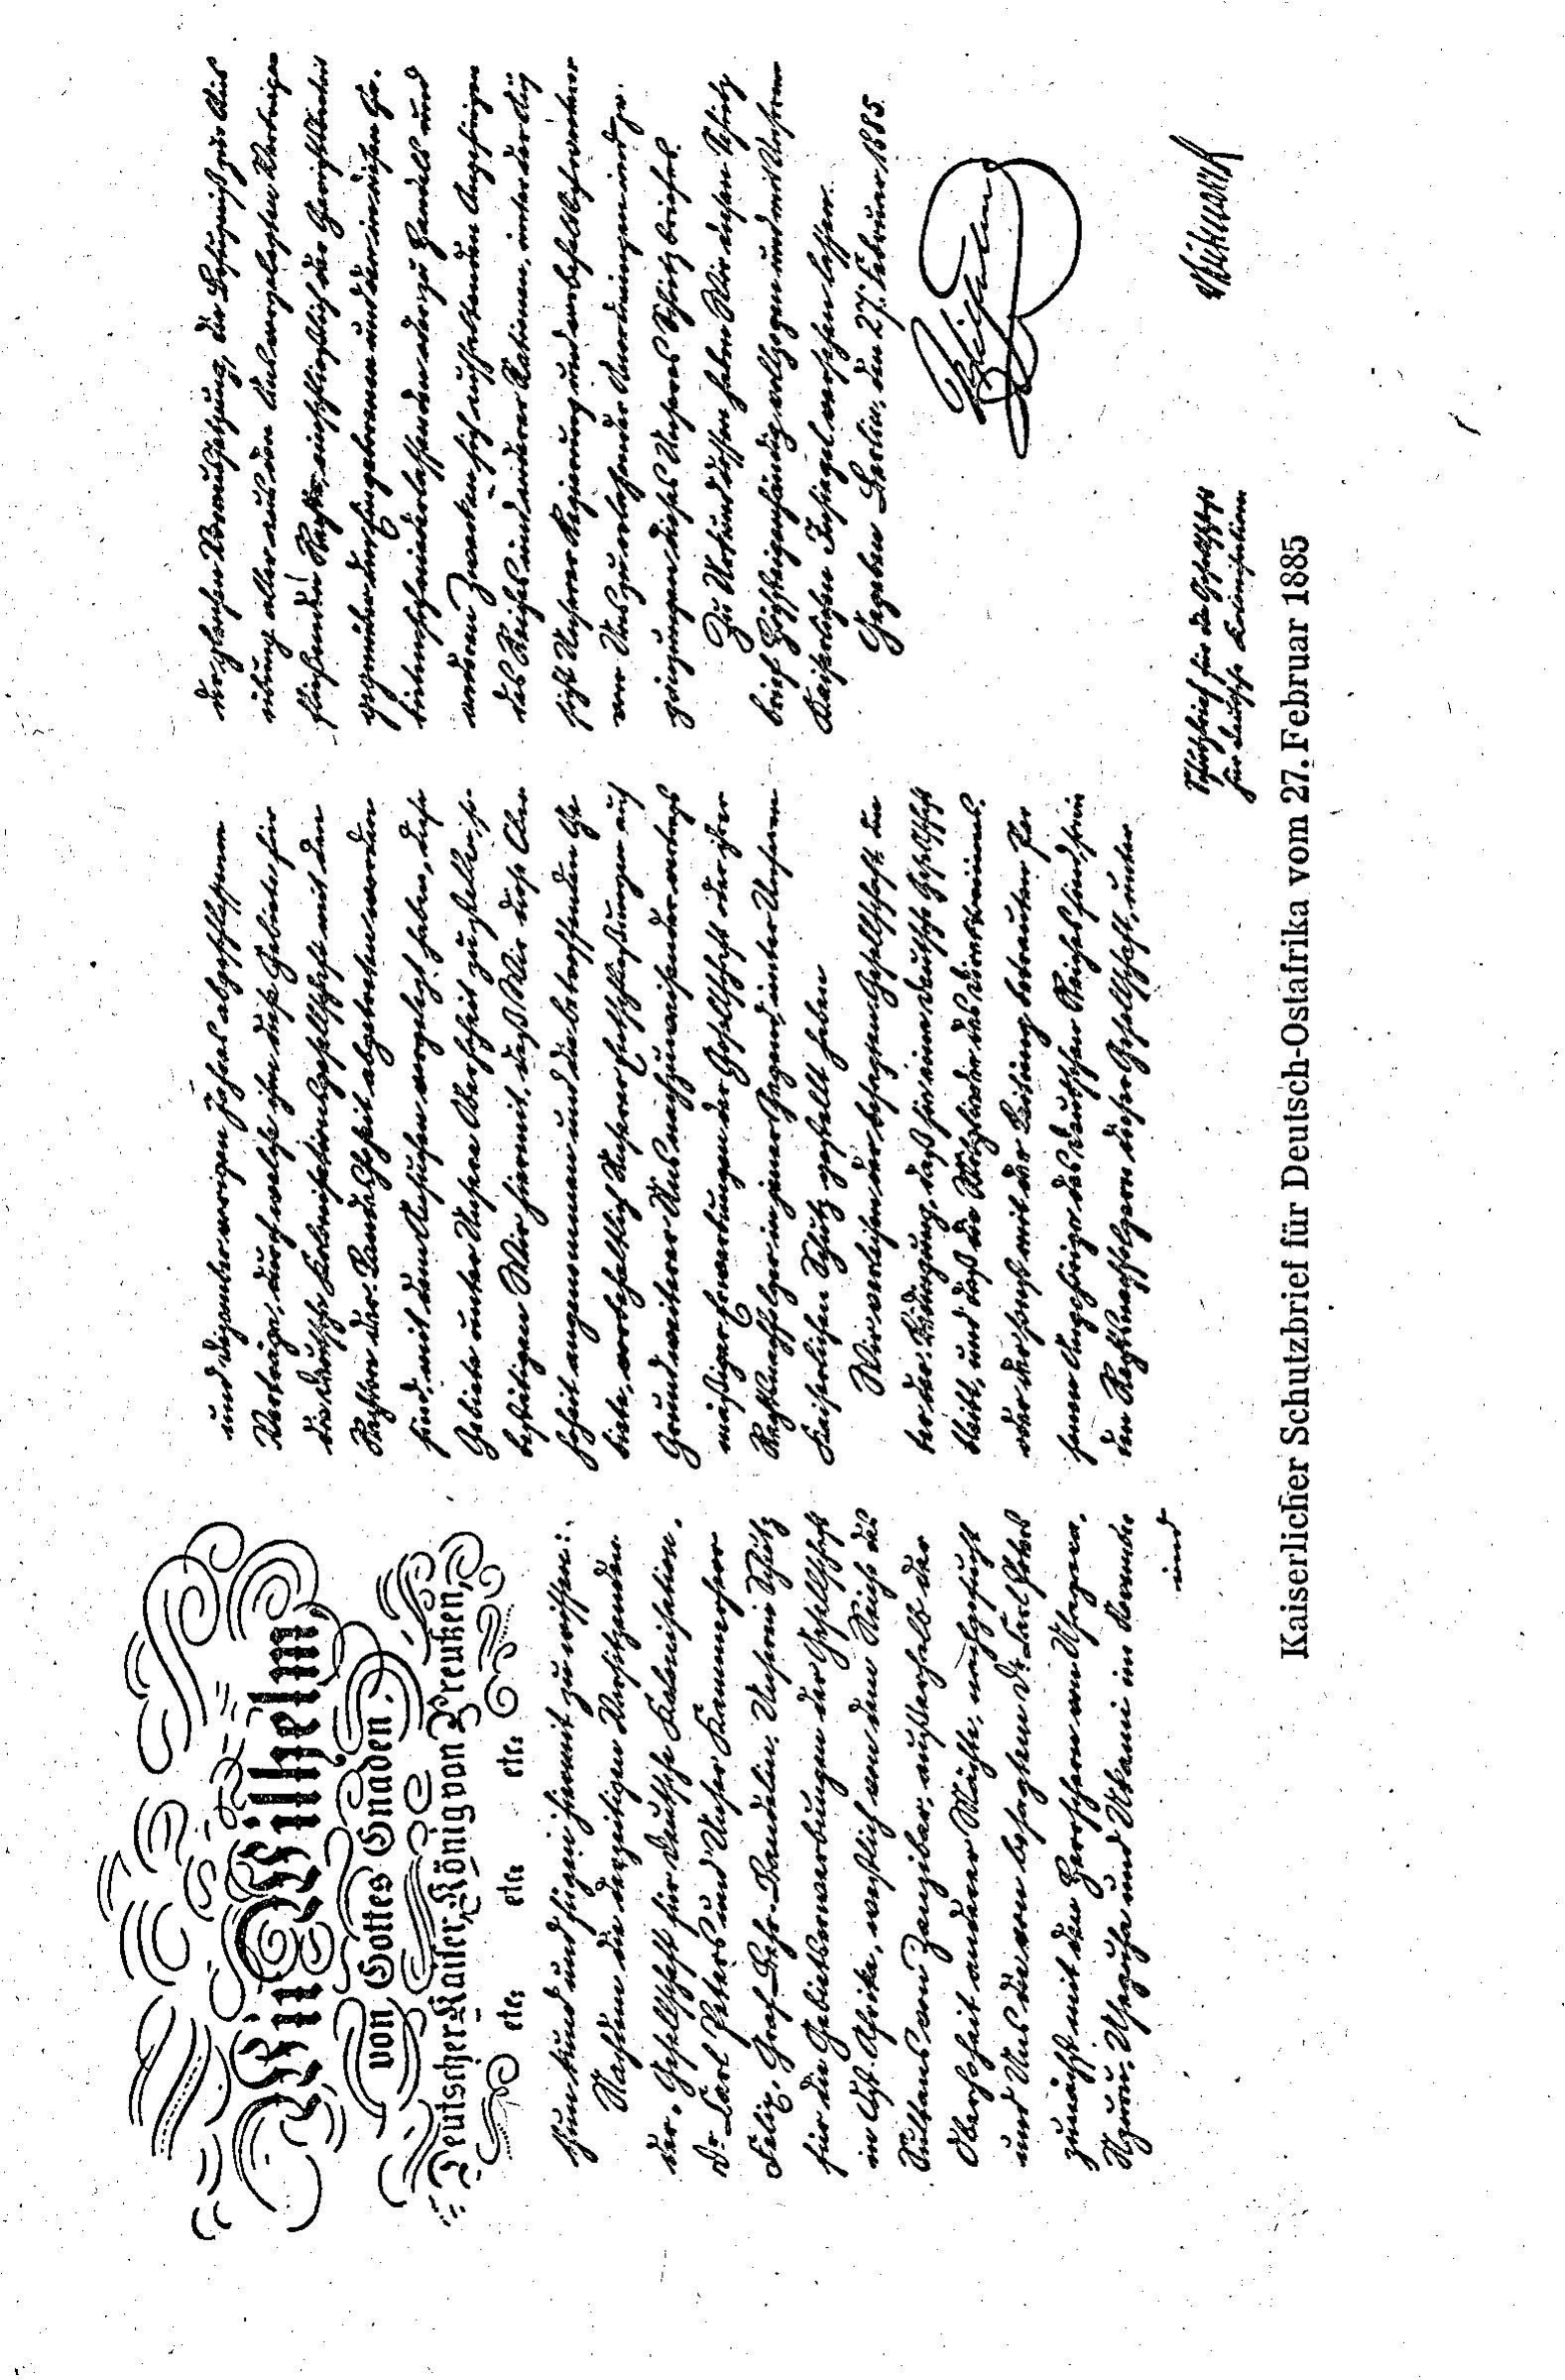 Wir Wilhelm
von Gottes Gnaden
Deutscher Kaiser, König von Preußen,
etc. etc. etc.
thun kund und fügen hiermit zu wissen:
Nachdem die derzeitigen Vorsitzenden
der „Gesellschaft für deutsche Kolonisation“,
Dr. Carl Peters und Unser Kammerherr
Felix, Graf Behr-Bandelin, Unseren Schutz
für die Gebietserwerbungen der Gesellschaft
in Ost-Afrika, westlich von dem Reiche des
Sultans von Zanzibar, außerhalb der
Oberhoheit anderer Mächte, nachgesucht
und Uns die von besagtem Dr. Carl Peters
zunächst mit den Herrschern von Usagara,
Nguru, Useguha und Ukami im November
und
und Dezember vorigen Jahres abgeschlossenen
Verträge, durch welche ihm diese Gebiete für
die deutsche Kolonisationsgesellschaft mit den
Rechten der Landeshoheit abgetreten worden
sind, mit dem Ansuchen vorgelegt haben, diese
Gebiete unter Unsere Oberhoheit zu stellen, so
bestätigen Wir hiermit, daß Wir diese Ober
hoheit angenommen und die betreffenden Ge
biete, vorbehaltlich Unserer Entschließungen auf
Grund weiterer Uns nachzuweisender vertrags
mäßiger Erwerbungen der Gesellschaft oder ihrer
Rechtsnachfolger in jener Gegend, unter Unseren
Kaiserlichen Schutz gestellt haben
Wir verleihen der besagten Gesellschaft un
ter der Bedingung, daß sie eine deutsche Gesellschaft
bleibt, und daß die Mitglieder des Direktoriums
oder der sonst mit der Leitung betrauten Per
sonen Angehörige des deutschen Reiches sind, sowie
den Rechtsnachfolgern dieser Gesellschaft, unter
der gleichen Voraussetzung, die Befugniß zur Aus
übung aller aus den Uns vorgelegten Verträgen
fließenden Rechte, einschließlich der Gerichtsbarkeit
gegenüber den Eingeborenen und den in diesen Ge-
bieten sich niederlassenden oder zu Handels und
anderen Zwecken sich aufhaltenden Angehörigen
des Reiches und anderer Nationen, unter der Auf
sicht Unserer Regierung und vorbehaltlich weiterer
von Uns zu erlassender Anordnungen und Er-
gänzungen dieses Unseres Schutzbriefes.
Zu Urkund dessen haben Wir diesen Schutz
brief Höchsteigenhändig vollzogen und mit Unserem
Kaiserlichen Insiegel versehen lassen.
Gegeben Berlin, den 27. Februar 1885.
Wilhelm
v Bismarck
Schutzbrief für die Gesellschaft
für deutsche Kolonisation
Kaiserlicher Schutzbrief für Deutsch-Ostafrika vom 27. Februar 1885